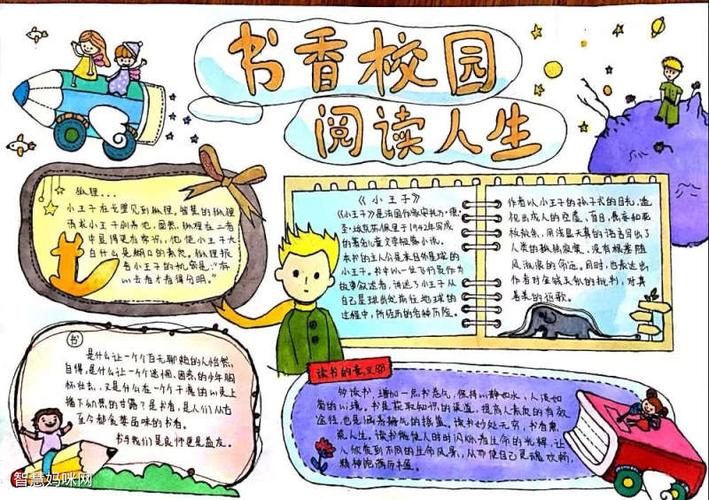 书香校园
阅读人生
狐狸...
小王子在花园见到狐狸。智慧的狐狸
请求小王子驯养他。虽然,狐狸在二者
中显得更有学识,他使小王子大
白什么是
小王子的礼物是:“
《小王子》
《小王子》是法国作家安托万·德·
圣·埃克苏佩里于1942年写成
的著名儿童文学短篇小说。
本书的主人公是来自外星球的
小王子。书中以一位飞行员作为
故事叙述者,讲述了小王子从
自己星球出发前往地球的
过程中,所经历的各种历险。
作者以小王子的孩子式的目光,透
视出成人的空虚、盲目,愚妄和死
板教条,用浅显天真的语言写出了
人类的孤独寂寞、没有根基随
风流浪的命运。同时,也表达出
作者对金钱关系的批判,对真
善美的讴歌。
书
是什么让一个个百无聊赖的人怡然
自得,是什么让一个个迷惘、困惑的少年胸
怀壮志,又是什么在一个个干涸的心灵上
播下幼嫩的甘露?是书卷,是人们从古
至今都食楚品味的书卷。
书与我们是良师更是益友。
读书的意义
多读书,增加一点书卷气,保持心静如水,人淡如
菊的心境。书是获取知识的渠道,提高人素质的有效
途径,也是涵养静气的摇篮。读书妙处无穷,书香熏
染人生。读书能使人时时闪烁着生命的光辉,让
人欣赏到不同的生命风景,从而使自己灵魂欢畅,
精神饱满而丰盈。
智慧妈咪网